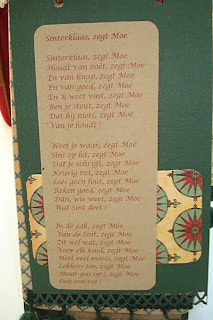 Sinterklaas, zegt Moe
Sinterklaas, zegt Moe
Houdt van zoet, zegt Moe
En van knap, zegt Moe
En van goed, zegt Moe
En 'k weet vast, zegt Moe
Ben je stout, zegt Moe
Dat hij niets, zegt Moe
Van je houdt !
Weet je waar, zegt Moe
Sint op let, zegt Moe
Dat je schrijft, zegt Moe
Keurig net, zegt Moe
Lees geen fout, zegt Moe
Reken goed, zegt Moe
Dan, wie weet, zegt Moe
Wat Sint doet !
In de zak, zegt Moe
Van de Sint, zegt Moe
Zit wel wat, zegt Moe
Voor elk kind, zegt Moe
Heel veel moois, zegt Moe
Lekkers toe, zegt Moe
Maar pas op !, zegt Moe
Ook een roe !